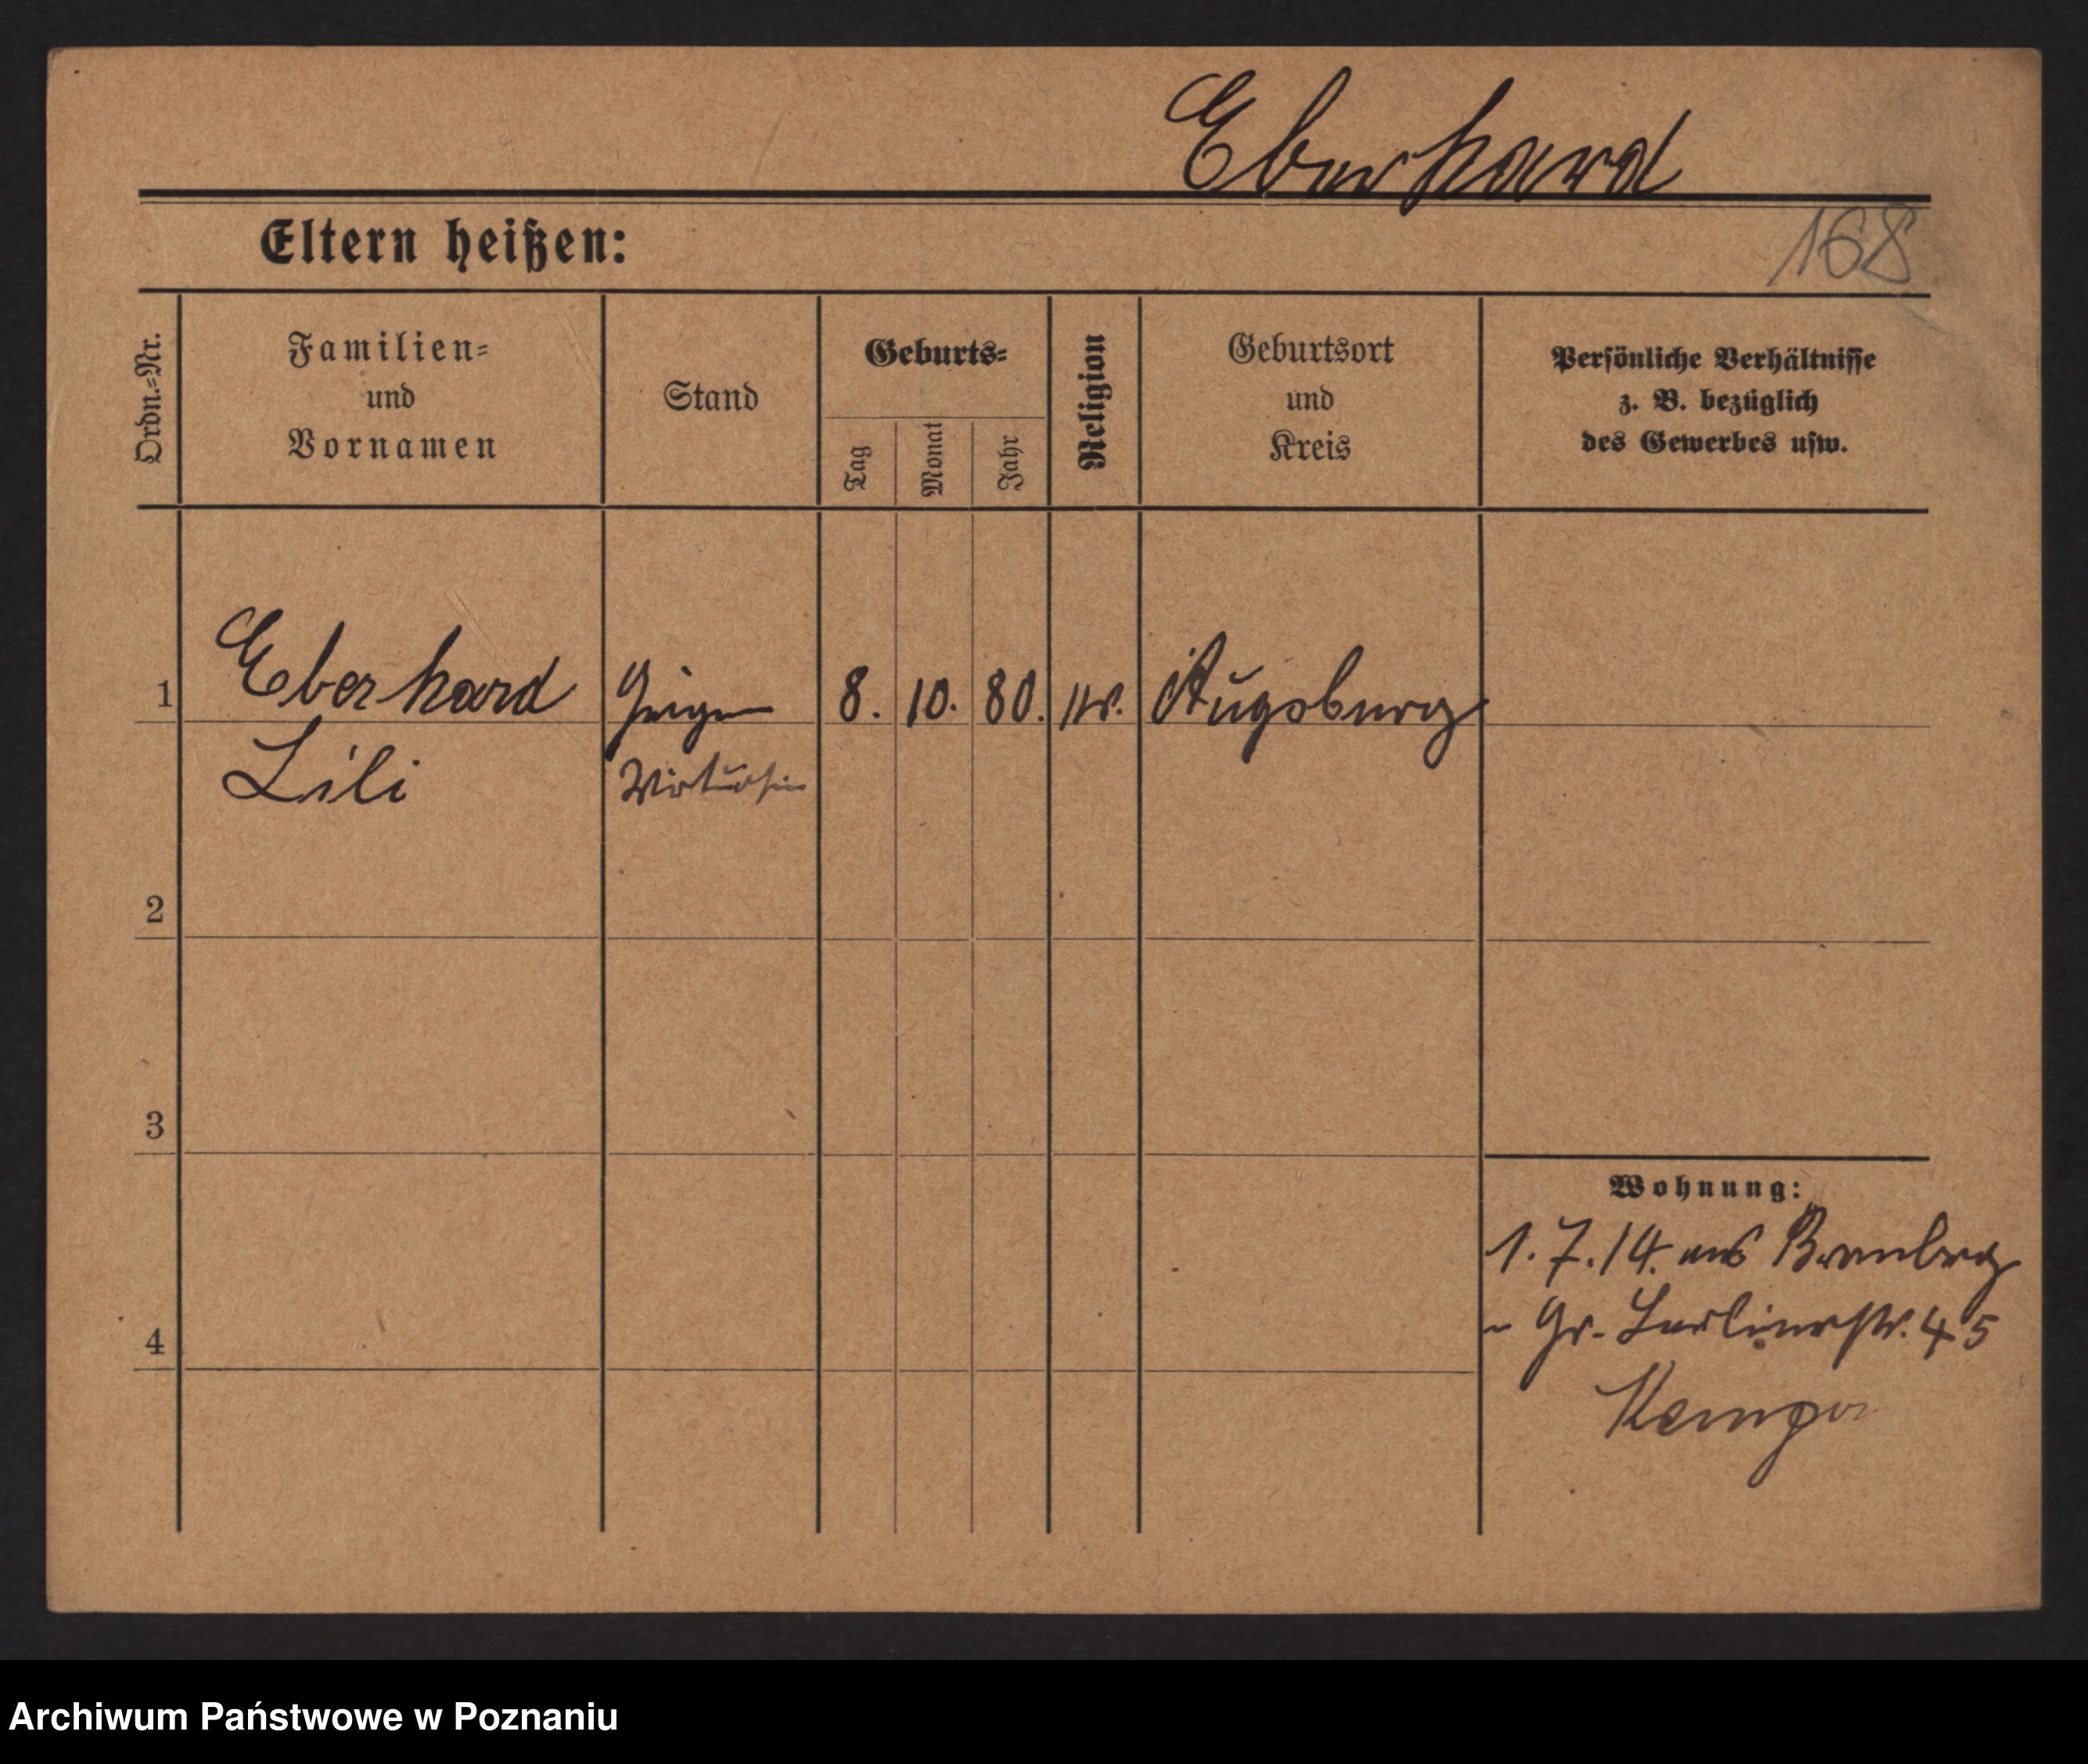 Eberhard
Eltern heißen:
168
Ordn.=Nr.
Familien=
und
Vornamen
Stand
Geburts=
Tag
Monat
Jahr
Religion
Geburtsort
und
Kreis
Persönliche Verhältnisse
z. B. bezüglich
des Gewerbes usw.
1
Eberhard
Geigen
8.
10.
80.
Augsburg
Lili
Virtuosin
2
3
4
Wohnung:
1.7.14. aus
Gr. Berlinerstr. 45
Archiwum Państwowe w Poznaniu